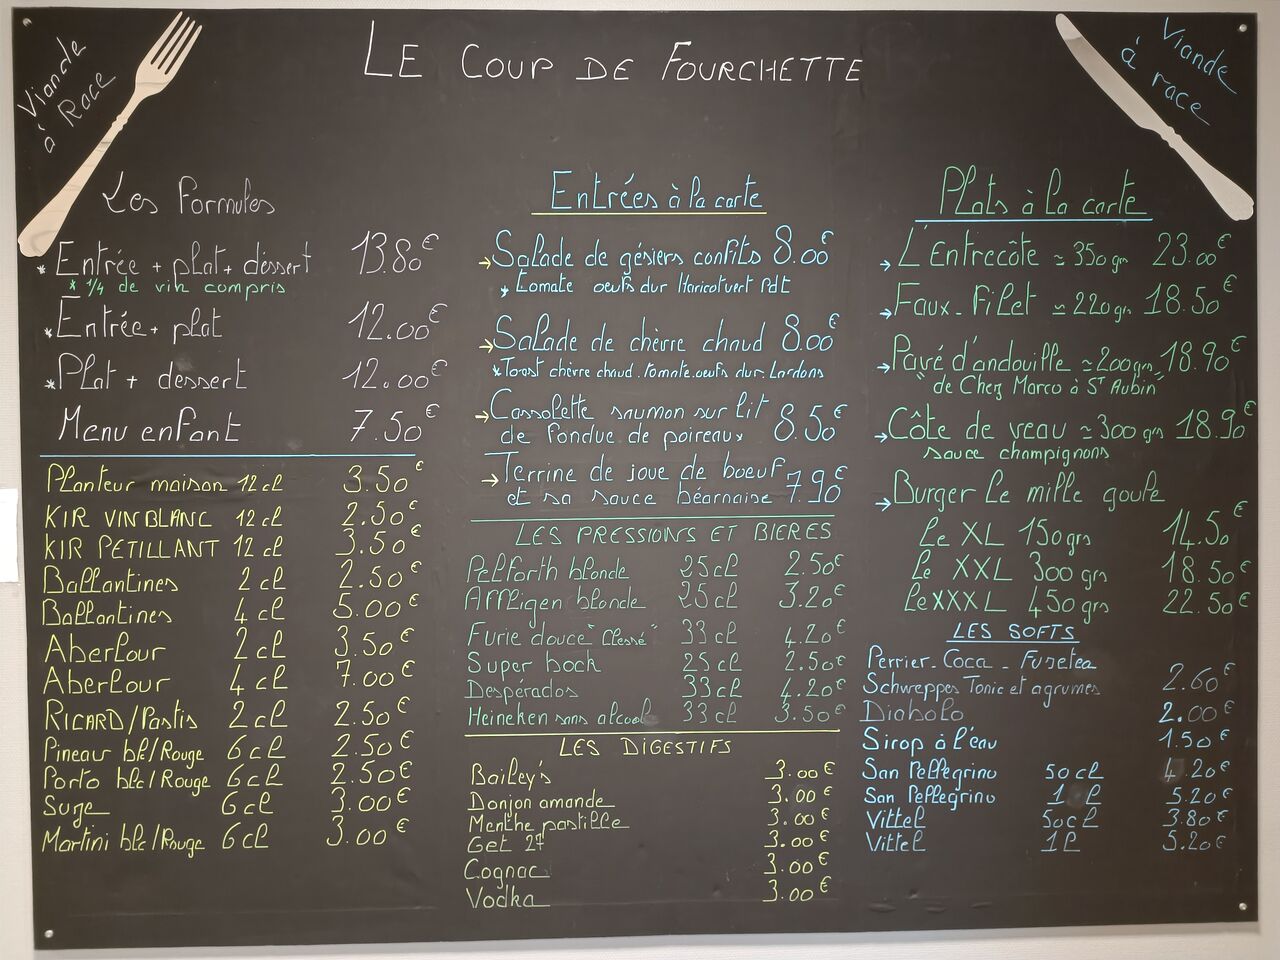 Viande
à Race
LE COUP DE FOURCHETTE
Viande
à race
Les Formules
* Entrée + plat + dessert 13.80€
* 1/4 de vin compris
* Entrée + plat 12.00€
* Plat + dessert 12.00€
Menu enfant 7.50€
Planteur maison 12 cl 3.50€
KIR VIN BLANC 12 cl 2.50€
KIR PETILLANT 12 cl 3.50€
Ballantines 2 cl 2.50€
Ballantines 4 cl 5.00€
Aberlour 2 cl 3.50€
Aberlour 4 cl 7.00€
RICARD/Pastis 2 cl 2.50€
Pineau blc/Rouge 6 cl 2.50€
Porto blc/Rouge 6 cl 2.50€
Suze 6 cl 3.00€
Martini blc/Rouge 6 cl 3.00€
Entrées à la carte
→ Salade de gésiers confits 8.00€
* tomate oeufs dur Haricot vert Pdt
→ Salade de chèvre chaud 8.00€
* Toast chèvre chaud. tomate. oeufs dur. Lardons
→ Cassolette saumon sur lit
de fondue de poireaux 8.50€
→ Terrine de joue de boeuf
et sa sauce béarnaise 7.90€
LES PRESSIONS ET BIERES
Pelforth blonde 25 cl 2.50€
Affligen blonde 25 cl 3.20€
Furie douce "Clessé" 33 cl 4.20€
Super bock 25 cl 2.50€
Despérados 33 cl 4.20€
Heineken sans alcool 33 cl 3.50€
LES DIGESTIFS
Bailey's 3.00€
Donjon amande 3.00€
Menthe pastille 3.00€
Get 27 3.00€
Cognac 3.00€
Vodka 3.00€
Plats à la carte
→ L'Entrecôte ≃ 350 gr 23.00€
→ Faux-Filet ≃ 220 gr 18.50€
→ Pavé d'andouille ≃ 200 grs 18.90€
"de Chez Marco à St Aubin"
→ Côte de veau ≃ 300 grs 18.90€
sauce champignons
→ Burger le mille goule
Le XL 150 grs 14.50€
Le XXL 300 grs 18.50€
Le XXXL 450 grs 22.50€
LES SOFTS
Perrier - Coca - Fuzetea
Schweppes Tonic et agrumes 2.60€
Diabolo 2.00€
Sirop à l'eau 1.50€
San Pellegrino 50 cl 4.20€
San Pellegrino 1 l 5.20€
Vittel 50 cl 3.80€
Vittel 1 l 5.20€